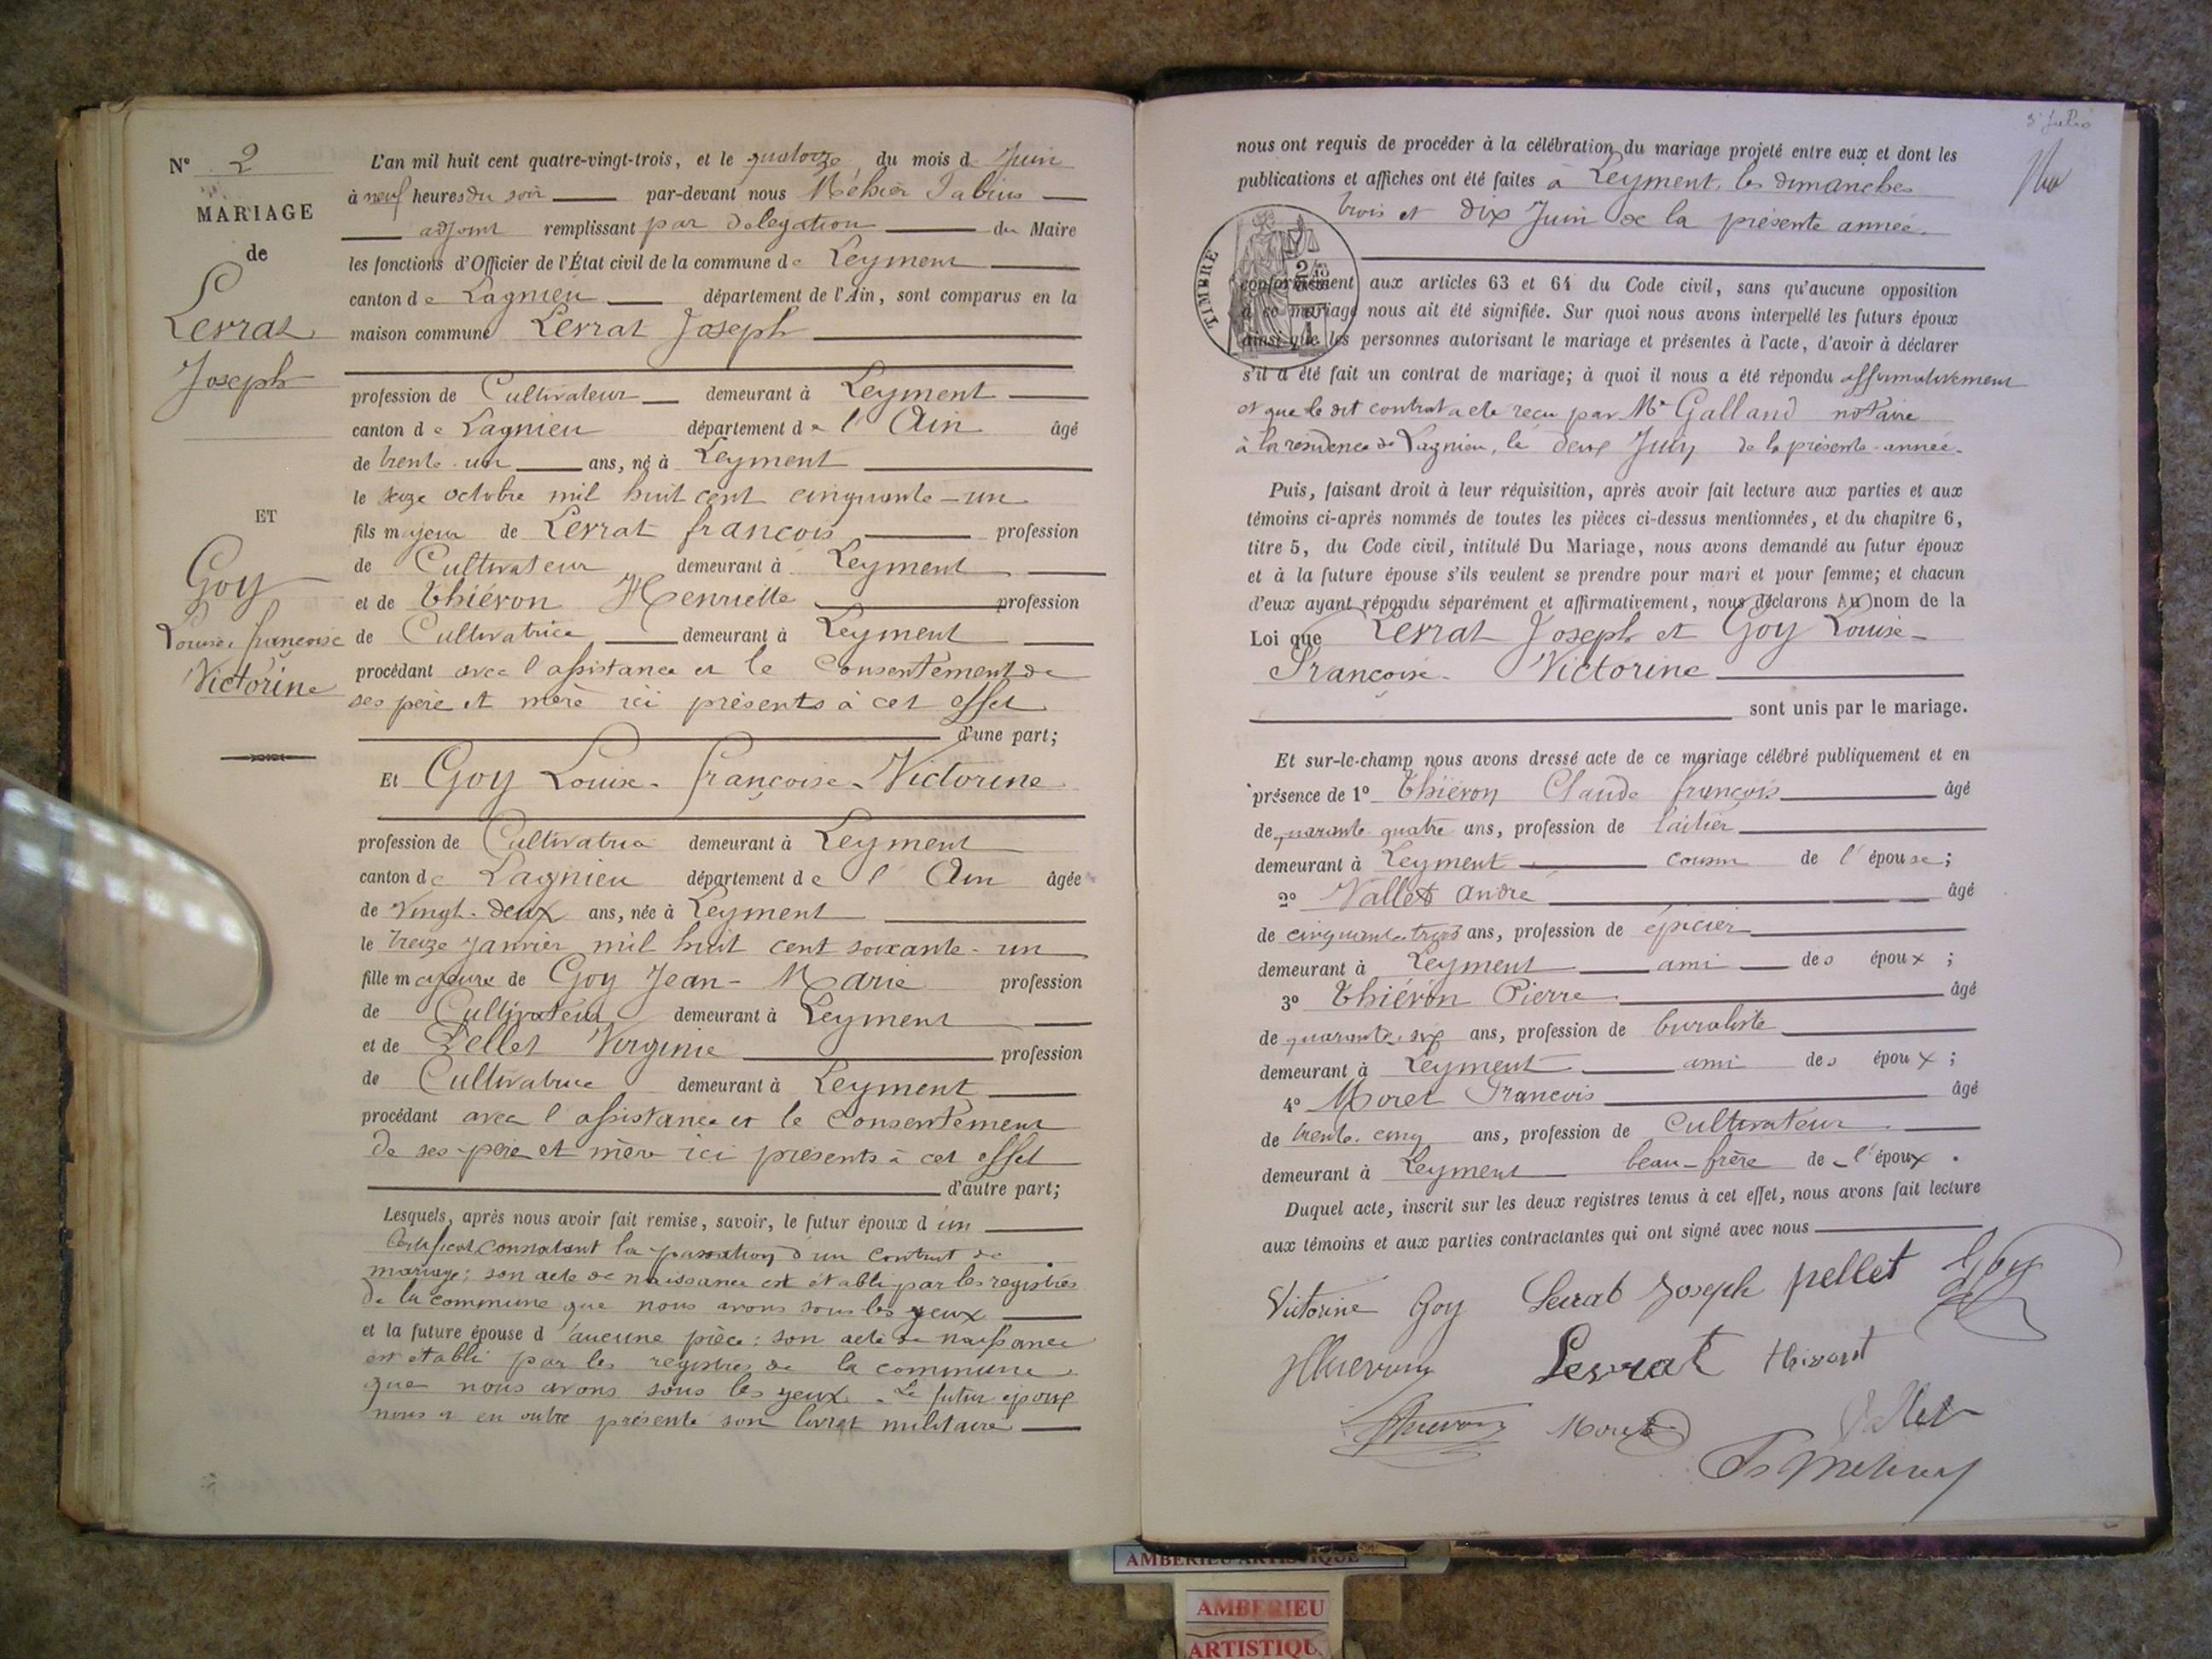 N° 2
MARIAGE
de
Lerrat
Joseph
ET
Goy
Louise françoise
Victorine
L'an mil huit cent quatre-vingt-trois, et le quatorze du mois de Juin
à neuf heures du soir par-devant nous Méhier Fabius
adjoint remplissant par délégation du Maire
les fonctions d'Officier de l'État civil de la commune de Leyment
canton de Lagnieu département de l'Ain, sont comparus en la
maison commune Lerrat Joseph
profession de Cultivateur demeurant à Leyment
canton de Lagnieu département de l'Ain âgé
de trente-un ans, né à Leyment
le seize octobre mil huit cent cinquante-un
fils majeur de Lerrat françois profession
de Cultivateur demeurant à Leyment
et de Thiéron Henriette profession
de Cultivatrice demeurant à Leyment
procédant avec l'assistance et le Consentement de
ses père et mère ici présents à cet effet
d'une part;
Et Goy Louise-françoise-Victorine
profession de Cultivatrice demeurant à Leyment
canton de Lagnieu département de l'Ain âgée
de vingt-deux ans, née à Leyment
le treize janvier mil huit cent soixante-un
fille majeure de Goy Jean-Marie profession
de Cultivateur demeurant à Leyment
et de Pellet Virginie profession
de Cultivatrice demeurant à Leyment
procédant avec l'assistance et le Consentement
de ses père et mère ici présents à cet effet
d'autre part;
Lesquels, après nous avoir fait remise, savoir, le futur époux d'un
Certificat Constatant la passation d'un Contrat de
mariage; son acte de naissance est établi par les registres
de la commune que nous avons sous les yeux
et la future épouse d'aucune pièce: son acte de naissance
est établi par les registres de la commune
que nous avons sous les yeux. Le futur époux
nous a en outre présenté son livret militaire
nous ont requis de procéder à la célébration du mariage projeté entre eux et dont les
publications et affiches ont été faites à Leyment, les dimanches
trois et dix Juin de la présente année.
TIMBRE
conformément aux articles 63 et 64 du Code civil, sans qu'aucune opposition
à ce mariage nous ait été signifiée. Sur quoi nous avons interpellé les futurs époux
ainsi que les personnes autorisant le mariage et présentes à l'acte, d'avoir à déclarer
s'il a été fait un contrat de mariage; à quoi il nous a été répondu affirmativement
et que le dit contrat a été reçu par Me Galland notaire
à la résidence de Lagnieu, le deux Juin de la présente année.
Puis, faisant droit à leur réquisition, après avoir fait lecture aux parties et aux
témoins ci-après nommés de toutes les pièces ci-dessus mentionnées, et du chapitre 6,
titre 5, du Code civil, intitulé Du Mariage, nous avons demandé au futur époux
et à la future épouse s'ils veulent se prendre pour mari et pour femme; et chacun
d'eux ayant répondu séparément et affirmativement, nous déclarons Au nom de la
Loi que Lerrat Joseph et Goy Louise-
Françoise-Victorine
sont unis par le mariage.
Et sur-le-champ nous avons dressé acte de ce mariage célébré publiquement et en
présence de 1° Thiéron Claude françois âgé
de quarante quatre ans, profession de laitier
demeurant à Leyment cousin de l'épouse;
2° Vallet André âgé
de cinquante trois ans, profession de épicier
demeurant à Leyment ami des époux;
3° Thiéron Pierre âgé
de quarante-six ans, profession de buraliste
demeurant à Leyment ami des époux;
4° Moret Francois âgé
de trente-cinq ans, profession de Cultivateur
demeurant à Leyment beau-frère de l'époux.
Duquel acte, inscrit sur les deux registres tenus à cet effet, nous avons fait lecture
aux témoins et aux parties contractantes qui ont signé avec nous
Victorine Goy Lerrat Joseph pellet Goy
Lerrat
Moret Vallet
AMBERIEU ARTISTIQUE
AMBERIEU
ARTISTIQU